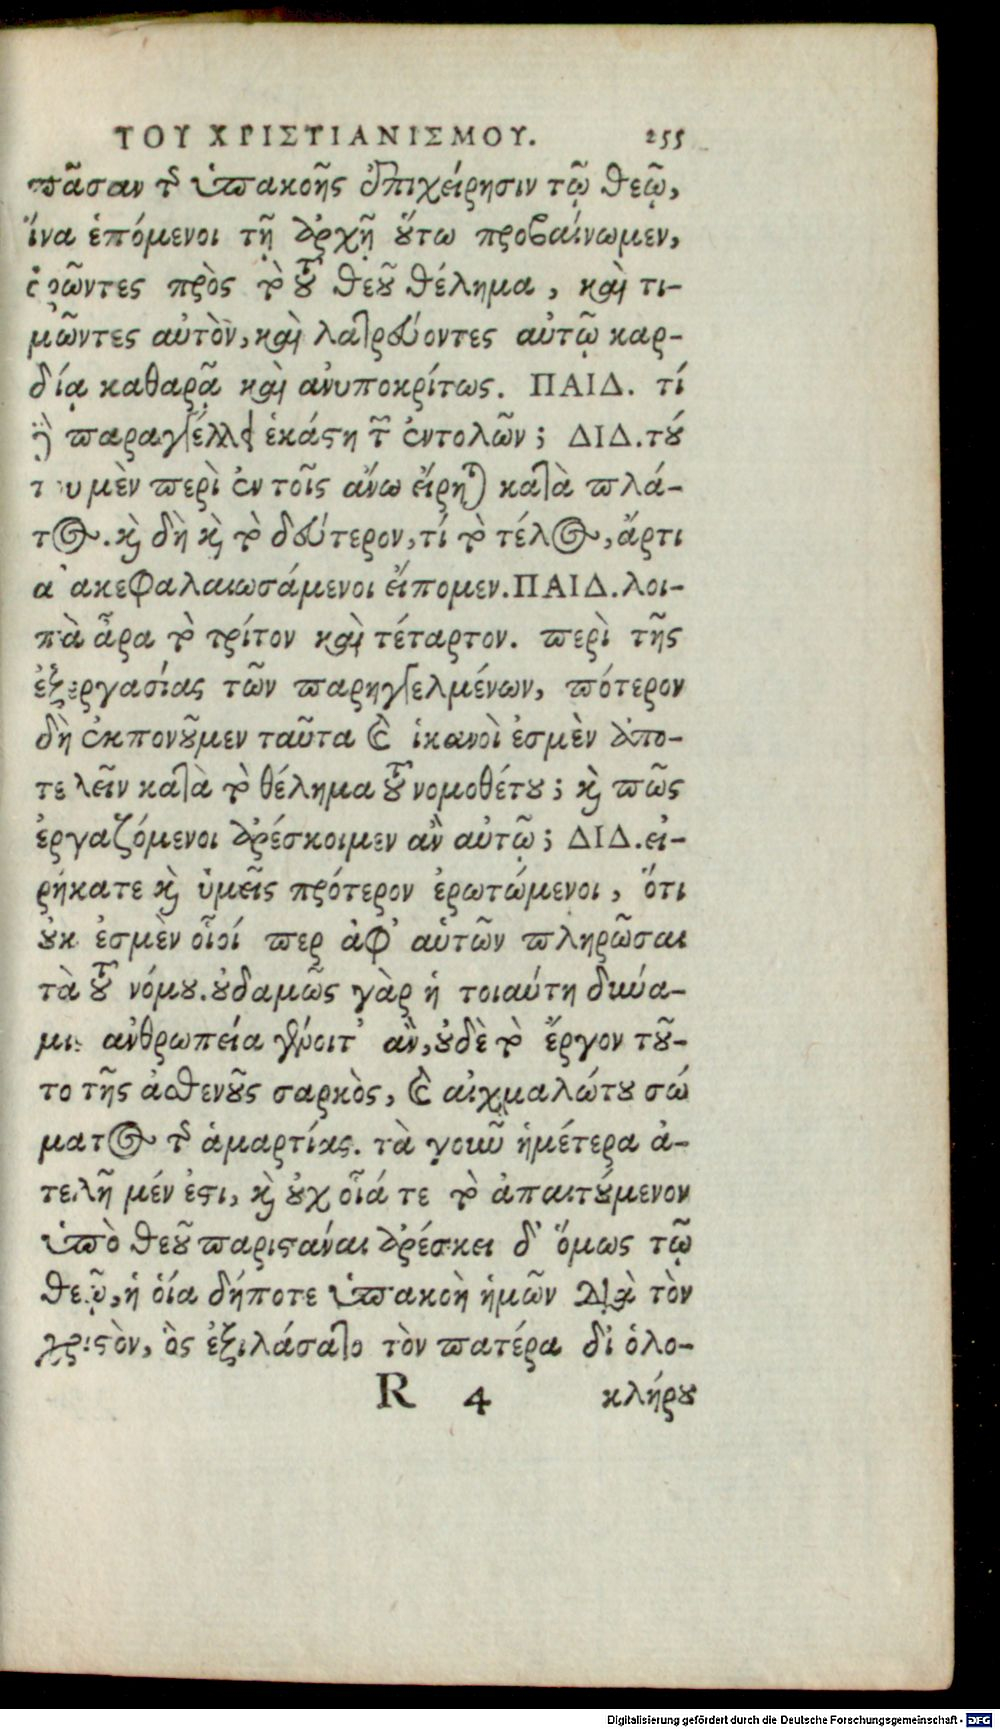 ΤΟΥ ΧΡΙΣΤΙΑΝΙΣΜΟΥ. 255
πᾶσαν τῆς ὑπακοῆς ἐπιχείρησιν τῷ θεῷ,
ἵνα ἑπόμενοι τῇ ἀρχῇ οὕτω προβαίνωμεν,
ὁρῶντες πρὸς τὸ τοῦ θεοῦ θέλημα, καὶ τι-
μῶντες αὐτὸν, καὶ λατρεύοντες αὐτῷ καρ-
δίᾳ καθαρᾷ καὶ ἀνυποκρίτως. ΠΑΙΔ. τί
παραγγέλλει ἑκάστη τῶν ἐντολῶν; ΔΙΔ. τού
του μὲν περὶ ἐν τοῖς ἄνω εἴρηται κατὰ πλά-
τος. καὶ δὴ καὶ τὸ δεύτερον, τί τὸ τέλος, ἄρτι
ἀνακεφαλαιωσάμενοι εἴπομεν. ΠΑΙΔ. λοι-
πὰ ἆρα τὸ τρίτον καὶ τέταρτον. περὶ τῆς
ἐξεργασίας τῶν παρηγγελμένων, πότερον
δὴ ἐκπονοῦμεν ταῦτα καὶ ἱκανοὶ ἐσμὲν ἀπο-
τελεῖν κατὰ τὸ θέλημα τοῦ νομοθέτου; καὶ πῶς
ἐργαζόμενοι ἀρέσκοιμεν ἂν αὐτῷ; ΔΙΔ. εἰ-
ρήκατε καὶ ὑμεῖς πρότερον ἐρωτώμενοι, ὅτι
οὐκ ἐσμὲν οἷοί περ ἀφ' αὑτῶν πληρῶσαι
τὰ τοῦ νόμου. οὐδαμῶς γὰρ ἡ τοιαύτη δύνα-
μις ἀνθρωπεία γένοιτ' ἂν, οὐδὲ τὸ ἔργον τοῦ-
το τῆς ἀσθενοῦς σαρκὸς, καὶ αἰχμαλώτου σώ
ματος τῆς ἁμαρτίας. τὰ γοῦν ἡμέτερα ἀ-
τελῆ μέν ἐστι, καὶ οὐχ οἷά τε τὸ ἀπαιτούμενον
ὑπὸ θεοῦ παριστάναι ἀρέσκει δ' ὅμως τῷ
θεῷ, ἡ ὁία δήποτε ὑπακοὴ ἡμῶν διὰ τὸν
χριστὸν, ὃς ἐξιλάσατο τὸν πατέρα δι ὁλο-
R 4 κλήρου
Digitalisierung gefördert durch die Deutsche Forschungsgemeinschaft - DFG